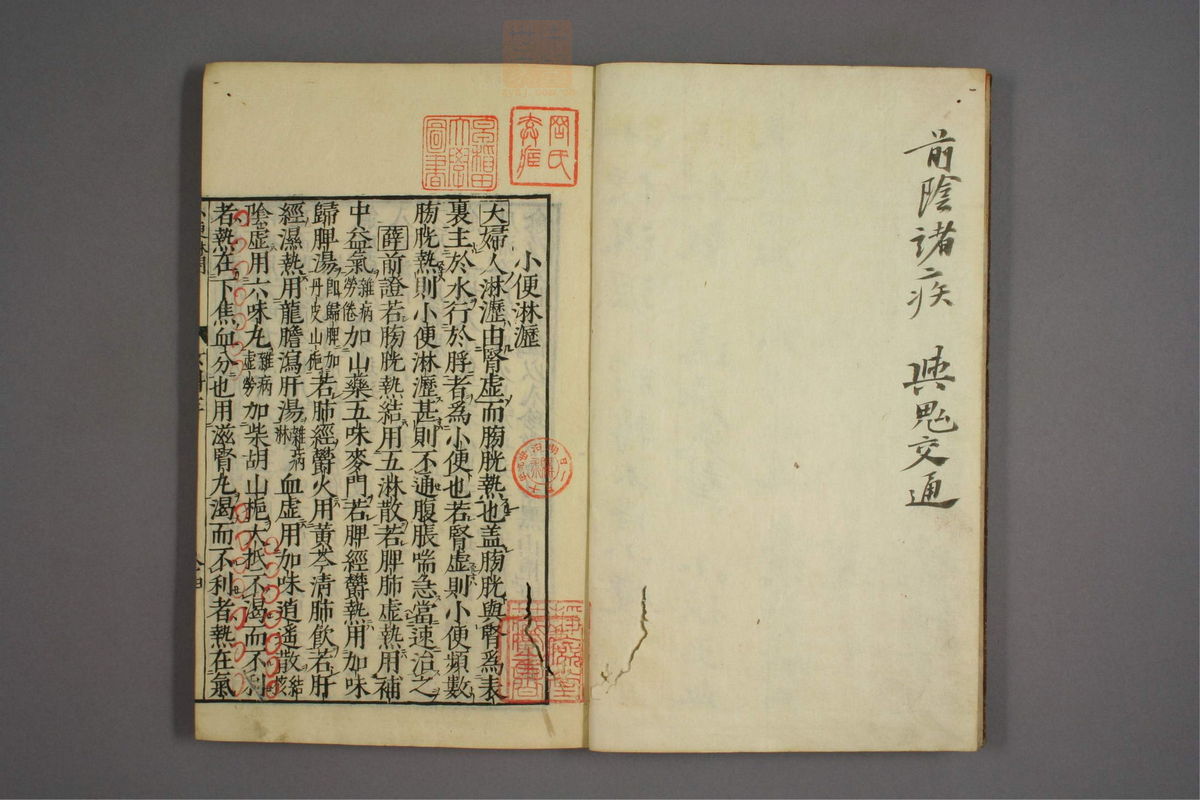 前陰諸疾　與鬼交通
小便淋瀝
大婦人淋瀝由腎虛而膀胱熱也盖膀胱與腎為表
裏主於水行於脬者為小便也若腎虛則小便頻數
膀胱熱則小便淋瀝甚則不通腹脹喘急當速治之
薛前證若膀胱熱結用五淋散若脾肺虛熱用補
中益氣雜病勞倦加山藥五味麥門若脾經欝熱用加味
歸脾湯卽歸脾加丹皮山梔若肺經欝火用黃芩清肺飲若肝
經濕熱用龍膽瀉肝湯雜病淋血虛用加味逍遥散結核
陰虛用六味丸雜病虛勞加柴胡山梔大抵不渴而不利
者熱在下焦血分也用滋腎丸渴而不利者熱在氣
早稻田大學圖書